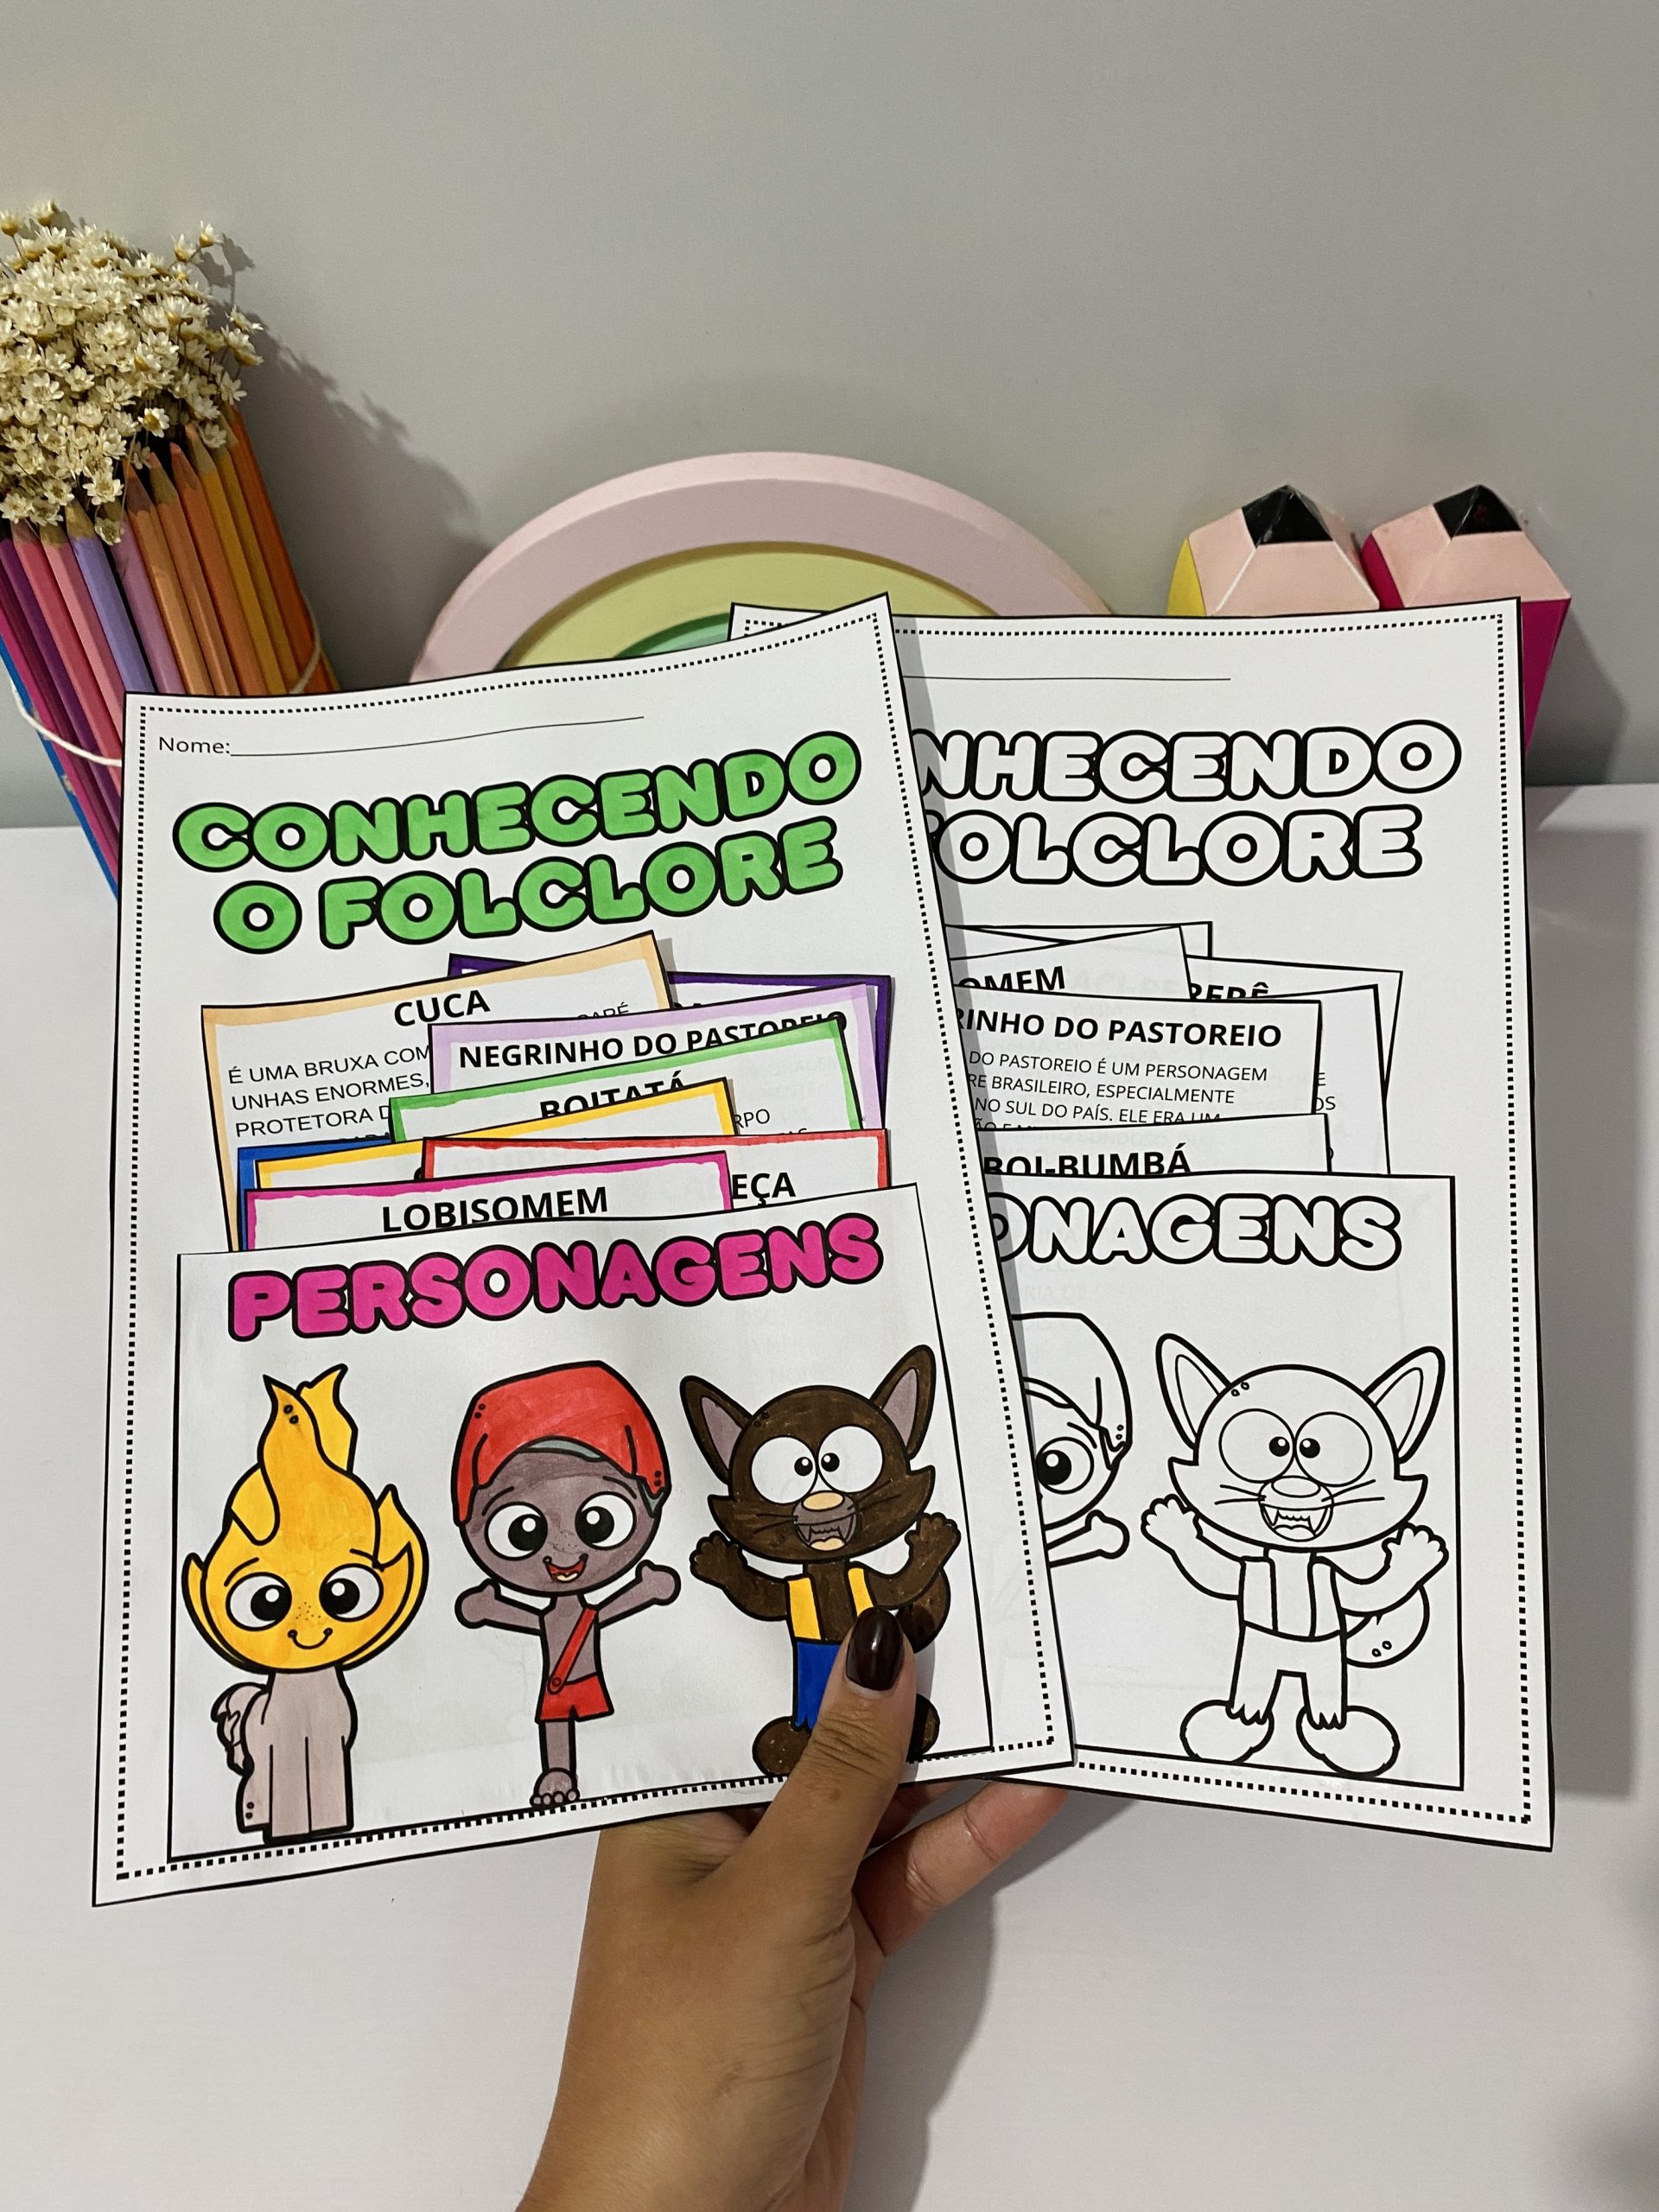 Nome:
CONHECENDO
O FOLCLORE
CUCA
É UMA BRUXA COM
UNHAS ENORMES,
PROTETORA D
NEGRINHO DO PASTOREIO
BOITATÁ
RPO
EÇA
LOBISOMEM
PERSONAGENS
NHECENDO
FOLCLORE
OMEM
RERÊ
RINHO DO PASTOREIO
DO PASTOREIO É UM PERSONAGEM
RE BRASILEIRO, ESPECIALMENTE
NO SUL DO PAÍS. ELE ERA UM
BOI-BUMBÁ
ONAGENS